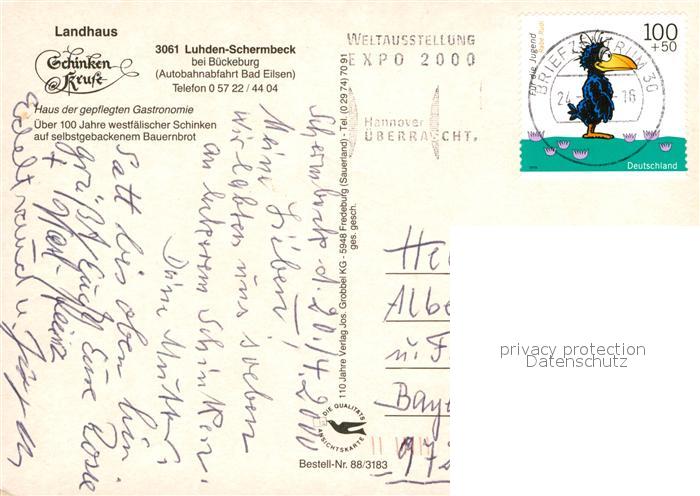 Landhaus
Schinken
Kruse
3061 Luhden-Schermbeck
bei Bückeburg
(Autobahnabfahrt Bad Eilsen)
Telefon 0 57 22 / 44 04
Haus der gepflegten Gastronomie
Über 100 Jahre westfälischer Schinken
auf selbstgebackenem Bauernbrot
WELTAUSSTELLUNG
EXPO 2000
Hannover
ÜBERRASCHT.
Für die Jugend
Rabe Rudi
100
+50
BRIEFZENTRUM 30
Deutschland
Schermbeck d. 20.4.2000
Meine Lieben!
Wir labten uns soeben
an leckerem Schinken.
Deine Mutter
Satt bis oben hin
grüßt Euch Eure Rosie
+ Karl-Heinz
Edeltraud u.
110 Jahre Verlag Jos. Grobbel KG - 5948 Fredeburg (Sauerland) - Tel. (0 29 74) 70 91
ges. gesch.
DIE QUALITÄTS
ANSICHTSKARTE
Bestell-Nr. 88/3183
He
Albe
u. F
Baye
972
privacy protection
Datenschutz